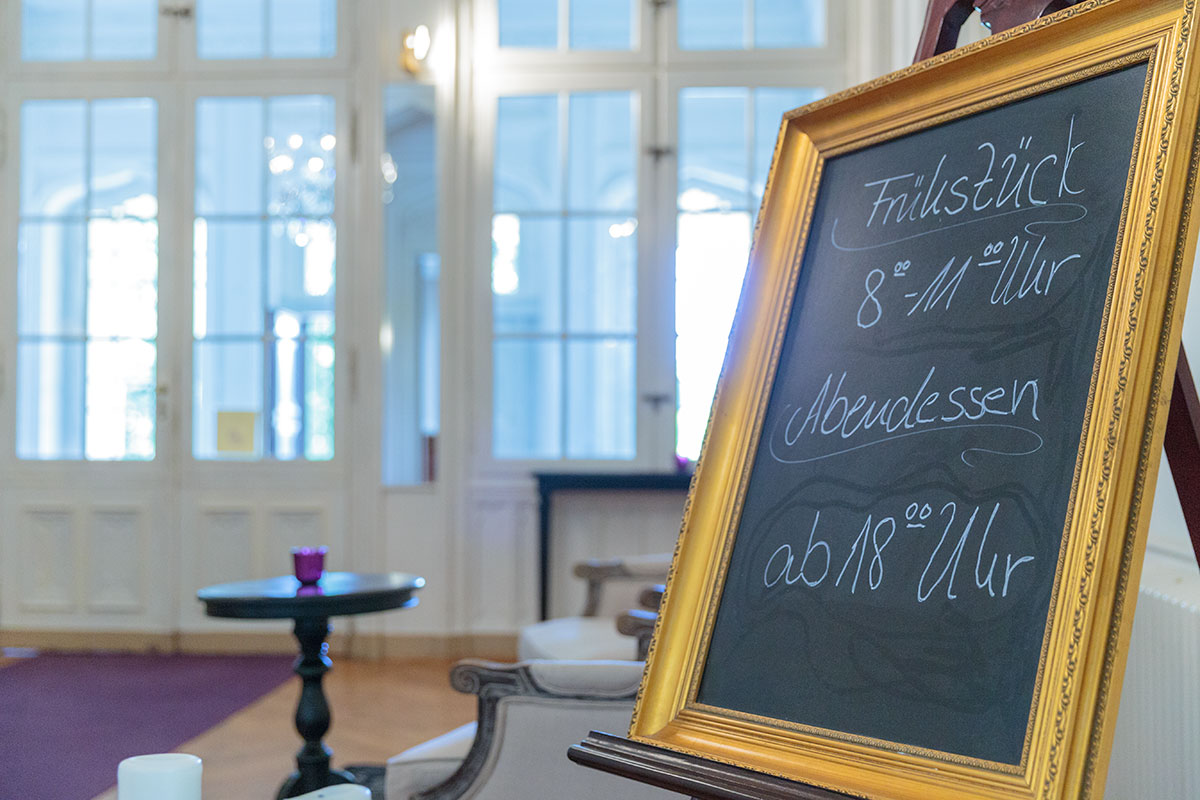 Frühstück
8⁰⁰-11⁰⁰ Uhr
Abendessen
ab 18⁰⁰ Uhr